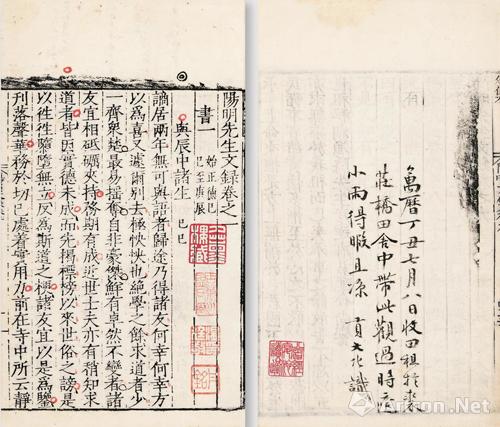 陽明先生文録卷之一
書一 始正德己巳至庚辰
與辰中諸生 己巳
謫居兩年無可與語者歸途乃得諸友何幸何幸方
以爲喜又遽爾別去極怏怏也絶學之餘求道者少
一齊衆楚最易搖奪自非豪傑鮮有卓然不變者諸
友宜相砥礪夾持務期有成近世士夫亦有稍知求
道者皆因實德未成而先揭標榜以來世俗之謗是
以徃徃隳墮無立反爲斯道之梗諸友宜以是爲鑒
刋落聲華務於切己處着實用力前在寺中所云靜
萬曆丁丑七月八日收田租於
莊橋田舍中帶此觀過時
小雨得暇且凉 貢大化識
Artron.Net